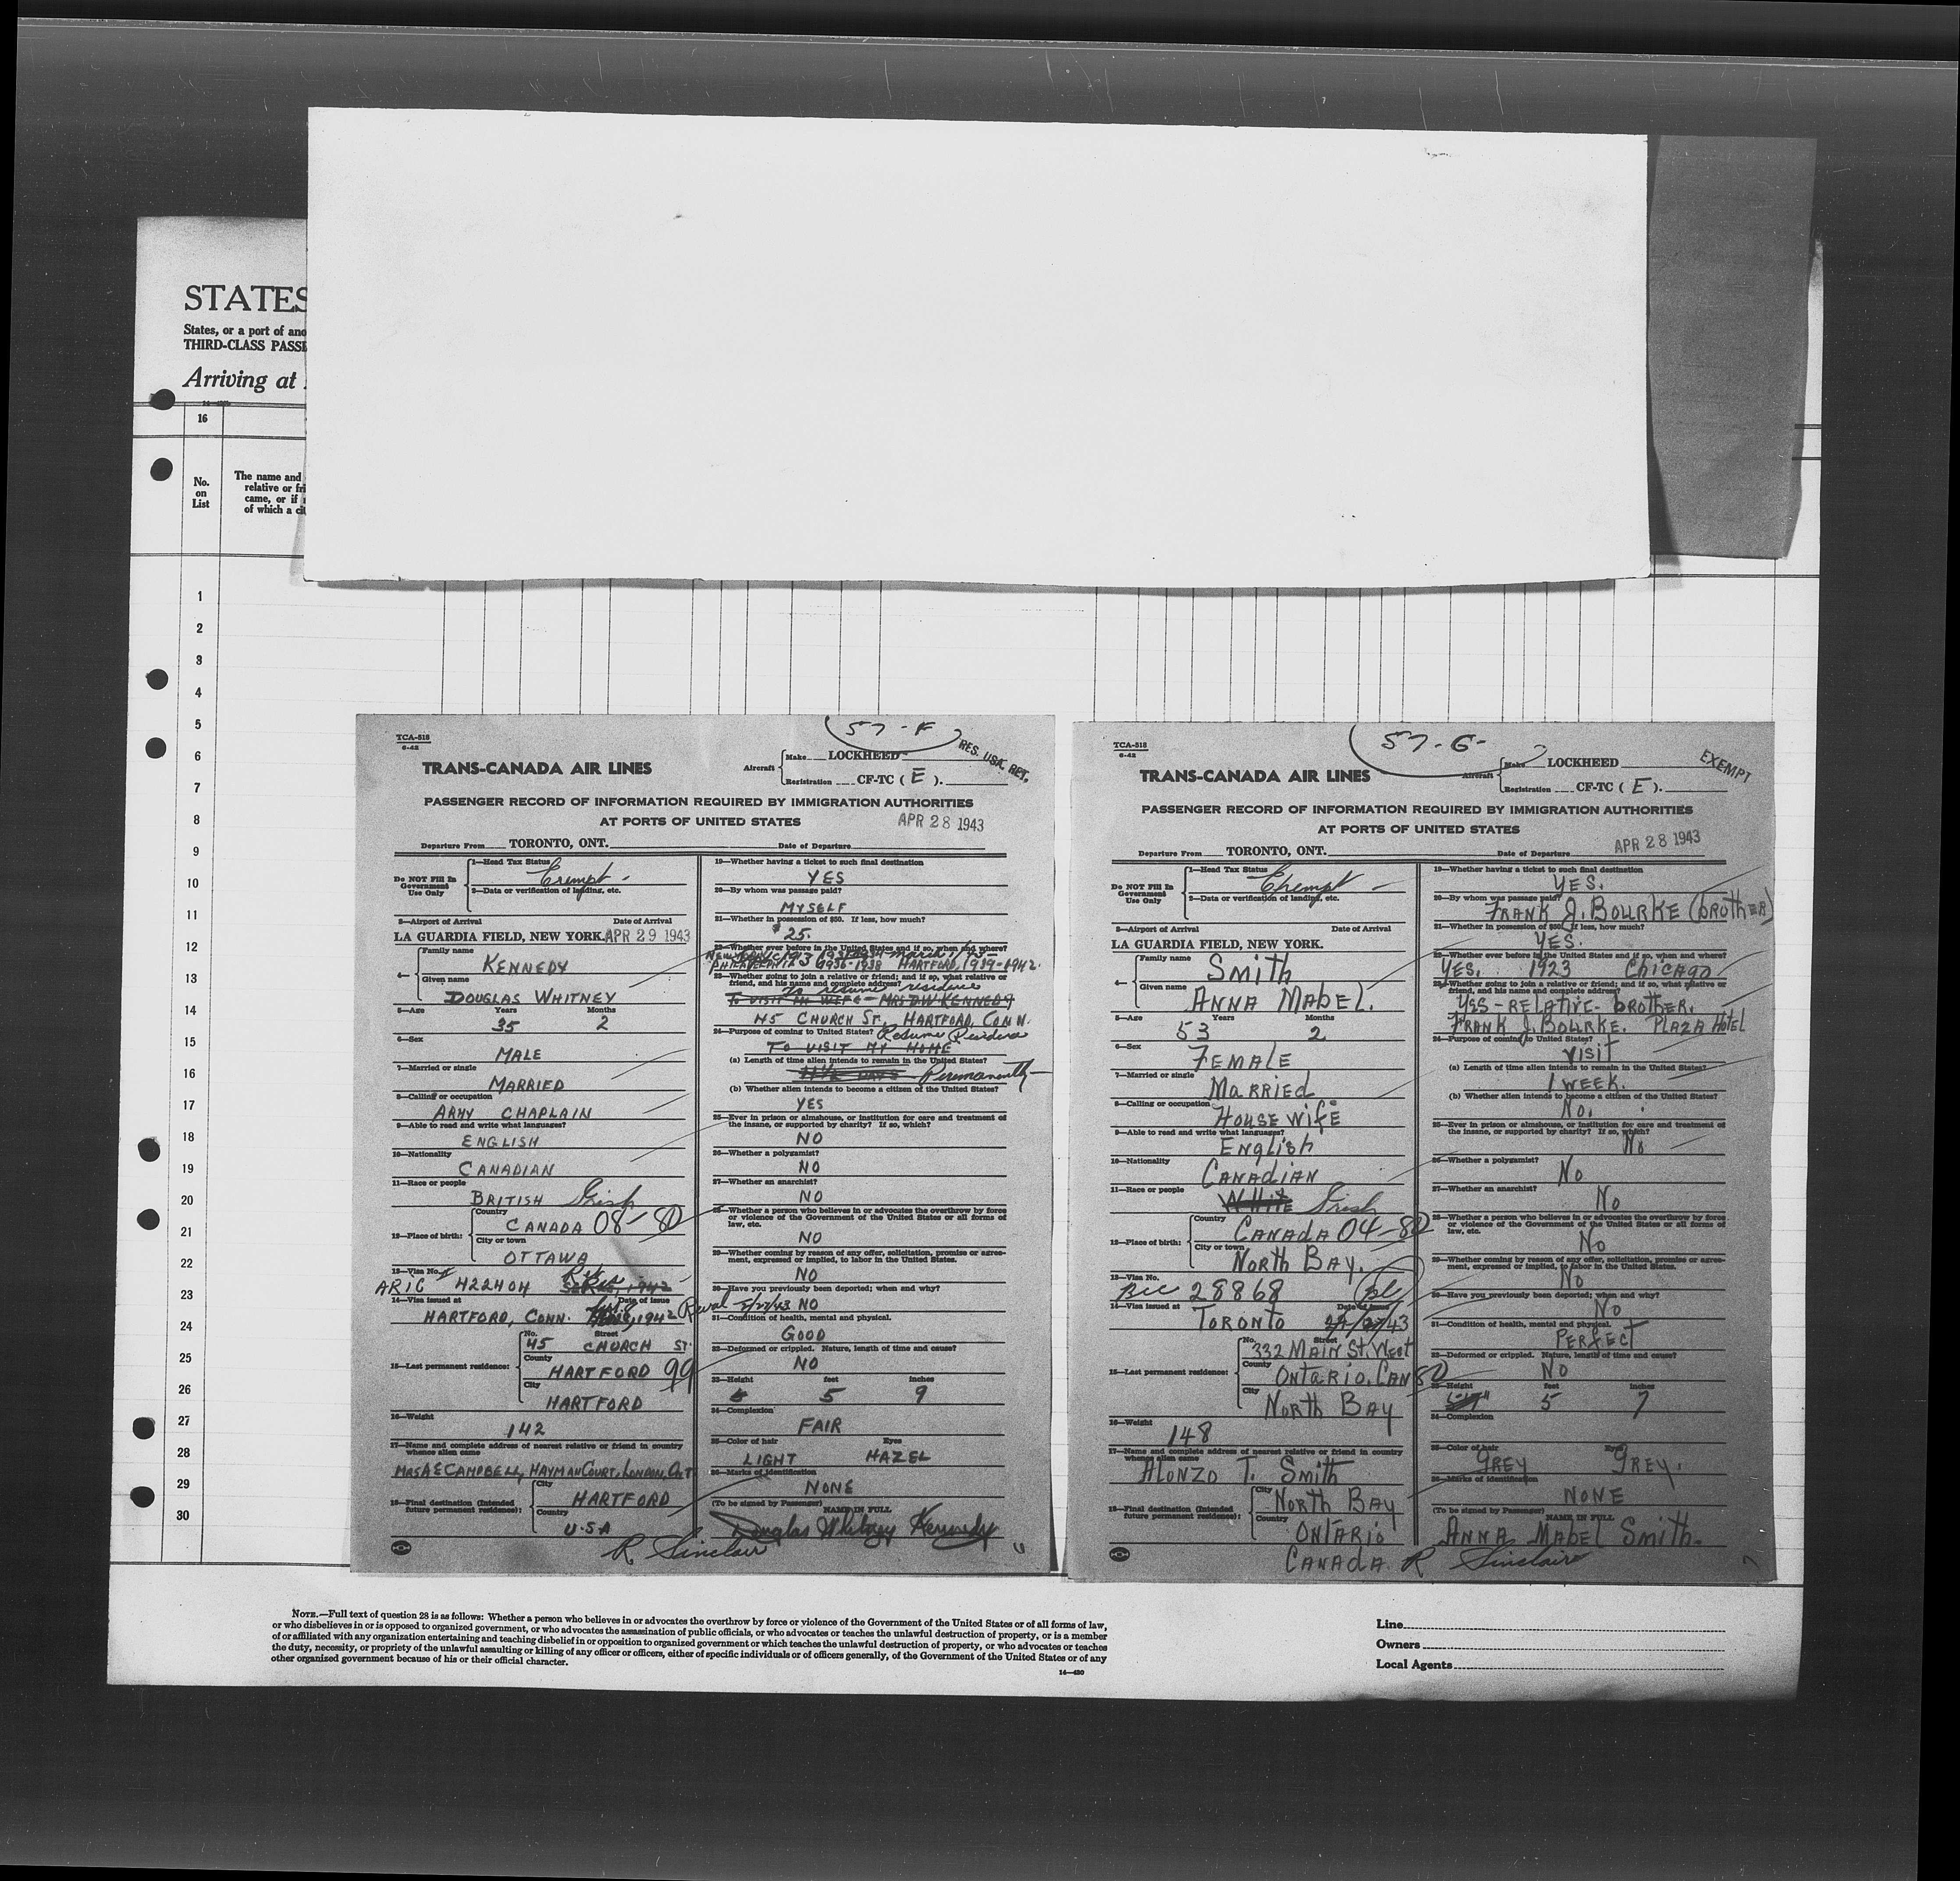 STATES
States, or a port of ano
THIRD-CLASS PASSE
Arriving at
16
No.
on
List
The name and
relative or fri
came, or if
of which a cit
1
2
3
4
5
6
7
8
9
10
11
12
13
14
15
16
17
18
19
20
21
22
23
24
25
26
27
28
29
30
57-F
TCA-518
6-42
TRANS-CANADA AIR LINES
Aircraft
Make LOCKHEED
Registration CF-TC ( E ).
RES. USA. RET.
PASSENGER RECORD OF INFORMATION REQUIRED BY IMMIGRATION AUTHORITIES
AT PORTS OF UNITED STATES
APR 28 1943
Departure From TORONTO, ONT. Date of Departure
Do NOT Fill In
Government
Use Only
1—Head Tax Status
Exempt -
2—Data or verification of landing, etc.
3—Airport of Arrival Date of Arrival
LA GUARDIA FIELD, NEW YORK. APR 29 1943
4—
Family name
KENNEDY
Given name
DOUGLAS WHITNEY
5—Age Years Months
35 2
6—Sex
MALE
7—Married or single
MARRIED
8—Calling or occupation
ARMY CHAPLAIN
9—Able to read and write what languages?
ENGLISH
10—Nationality
CANADIAN
11—Race or people
BRITISH Irish
12—Place of birth:
Country
CANADA 08-80
City or town
OTTAWA
13—Visa No.
ARIC 422404
14—Visa issued at Date of issue
HARTFORD, CONN. 1942
15—Last permanent residence:
No. Street
45 CHURCH ST.
County
HARTFORD 99
City
HARTFORD
16—Weight
142
17—Name and complete address of nearest relative or friend in country
whence alien came
MRS A E CAMPBELL, HAYMAN COURT, LONDON, ONT
18—Final destination (Intended
future permanent residence):
City
HARTFORD
Country
U.S.A
R Sinclair
19—Whether having a ticket to such final destination
YES
20—By whom was passage paid?
MYSELF
21—Whether in possession of $50. If less, how much?
$25.
22—Whether ever before in the United States and if so, when and where?
1936-1938 HARTFORD, 1939-1942.
23—Whether going to join a relative or friend; and if so, what relative or
friend, and his name and complete address?
To resume residence
TO VISIT MY WIFE - MRS D W KENNEDY
45 CHURCH ST., HARTFORD, CONN.
24—Purpose of coming to United States? Resume Residence
TO VISIT MY HOME
(a) Length of time alien intends to remain in the United States?
Permanently
(b) Whether alien intends to become a citizen of the United States?
YES
25—Ever in prison or almshouse, or institution for care and treatment of
the insane, or supported by charity? If so, which?
NO
26—Whether a polygamist?
NO
27—Whether an anarchist?
NO
28—Whether a person who believes in or advocates the overthrow by force
or violence of the Government of the United States or all forms of
law, etc.
NO
29—Whether coming by reason of any offer, solicitation, promise or agree-
ment, expressed or implied, to labor in the United States.
NO
30—Have you previously been deported; when and why?
NO
31—Condition of health, mental and physical.
GOOD
32—Deformed or crippled. Nature, length of time and cause?
NO
33—Height feet inches
5 9
34—Complexion
FAIR
35—Color of hair Eyes
LIGHT HAZEL
36—Marks of identification
NONE
(To be signed by Passenger)
NAME IN FULL
Douglas Whitney Kennedy
57-G-
TCA-518
6-42
TRANS-CANADA AIR LINES
Aircraft
Make LOCKHEED
Registration CF-TC ( E ).
EXEMPT
PASSENGER RECORD OF INFORMATION REQUIRED BY IMMIGRATION AUTHORITIES
AT PORTS OF UNITED STATES
APR 28 1943
Departure From TORONTO, ONT. Date of Departure
Do NOT Fill In
Government
Use Only
1—Head Tax Status
Exempt -
2—Data or verification of landing, etc.
3—Airport of Arrival Date of Arrival
LA GUARDIA FIELD, NEW YORK.
4—
Family name
Smith
Given name
ANNA MABEL.
5—Age Years Months
53 2
6—Sex
FEMALE
7—Married or single
Married
8—Calling or occupation
HOUSEWIFE
9—Able to read and write what languages?
English
10—Nationality
CANADIAN
11—Race or people
White Irish
12—Place of birth:
Country
CANADA 04-80
City or town
NORTH BAY.
13—Visa No.
BCC 28868
14—Visa issued at Date of issue
TORONTO 27/43
15—Last permanent residence:
No. Street
332 MAIN St. West
County
Ontario, CAN 80
City
NORTH BAY
16—Weight
148
17—Name and complete address of nearest relative or friend in country
whence alien came
ALONZO T. Smith
18—Final destination (Intended
future permanent residence):
City
NORTH BAY
Country
ONTARIO
CANADA. R Sinclair
19—Whether having a ticket to such final destination
YES.
20—By whom was passage paid?
FRANK J. BOURKE (brother)
21—Whether in possession of $50. If less, how much?
YES.
22—Whether ever before in the United States and if so, when and where?
YES. 1923 CHICAGO
23—Whether going to join a relative or friend; and if so, what relative or
friend, and his name and complete address?
YES - RELATIVE - brother.
FRANK J. BOURKE. PLAZA HOTEL
24—Purpose of coming to United States?
Visit
(a) Length of time alien intends to remain in the United States?
1 WEEK.
(b) Whether alien intends to become a citizen of the United States?
No.
25—Ever in prison or almshouse, or institution for care and treatment of
the insane, or supported by charity? If so, which?
No
26—Whether a polygamist?
No
27—Whether an anarchist?
No
28—Whether a person who believes in or advocates the overthrow by force
or violence of the Government of the United States or all forms of
law, etc.
No
29—Whether coming by reason of any offer, solicitation, promise or agree-
ment, expressed or implied, to labor in the United States.
No
30—Have you previously been deported; when and why?
No
31—Condition of health, mental and physical.
PERFECT
32—Deformed or crippled. Nature, length of time and cause?
No
33—Height feet inches
5 7
34—Complexion
35—Color of hair Eyes
GREY GREY.
36—Marks of identification
NONE
(To be signed by Passenger)
NAME IN FULL
ANNA MABEL Smith.
NOTE.—Full text of question 28 is as follows: Whether a person who believes in or advocates the overthrow by force or violence of the Government of the United States or of all forms of law,
or who disbelieves in or is opposed to organized government, or who advocates the assassination of public officials, or who advocates or teaches the unlawful destruction of property, or is a member
of or affiliated with any organization entertaining and teaching disbelief in or opposition to organized government or which teaches the unlawful destruction of property, or who advocates or teaches
the duty, necessity, or propriety of the unlawful assaulting or killing of any officer or officers, either of specific individuals or of officers generally, of the Government of the United States or of any
other organized government because of his or their official character.
14—430
Line
Owners
Local Agents